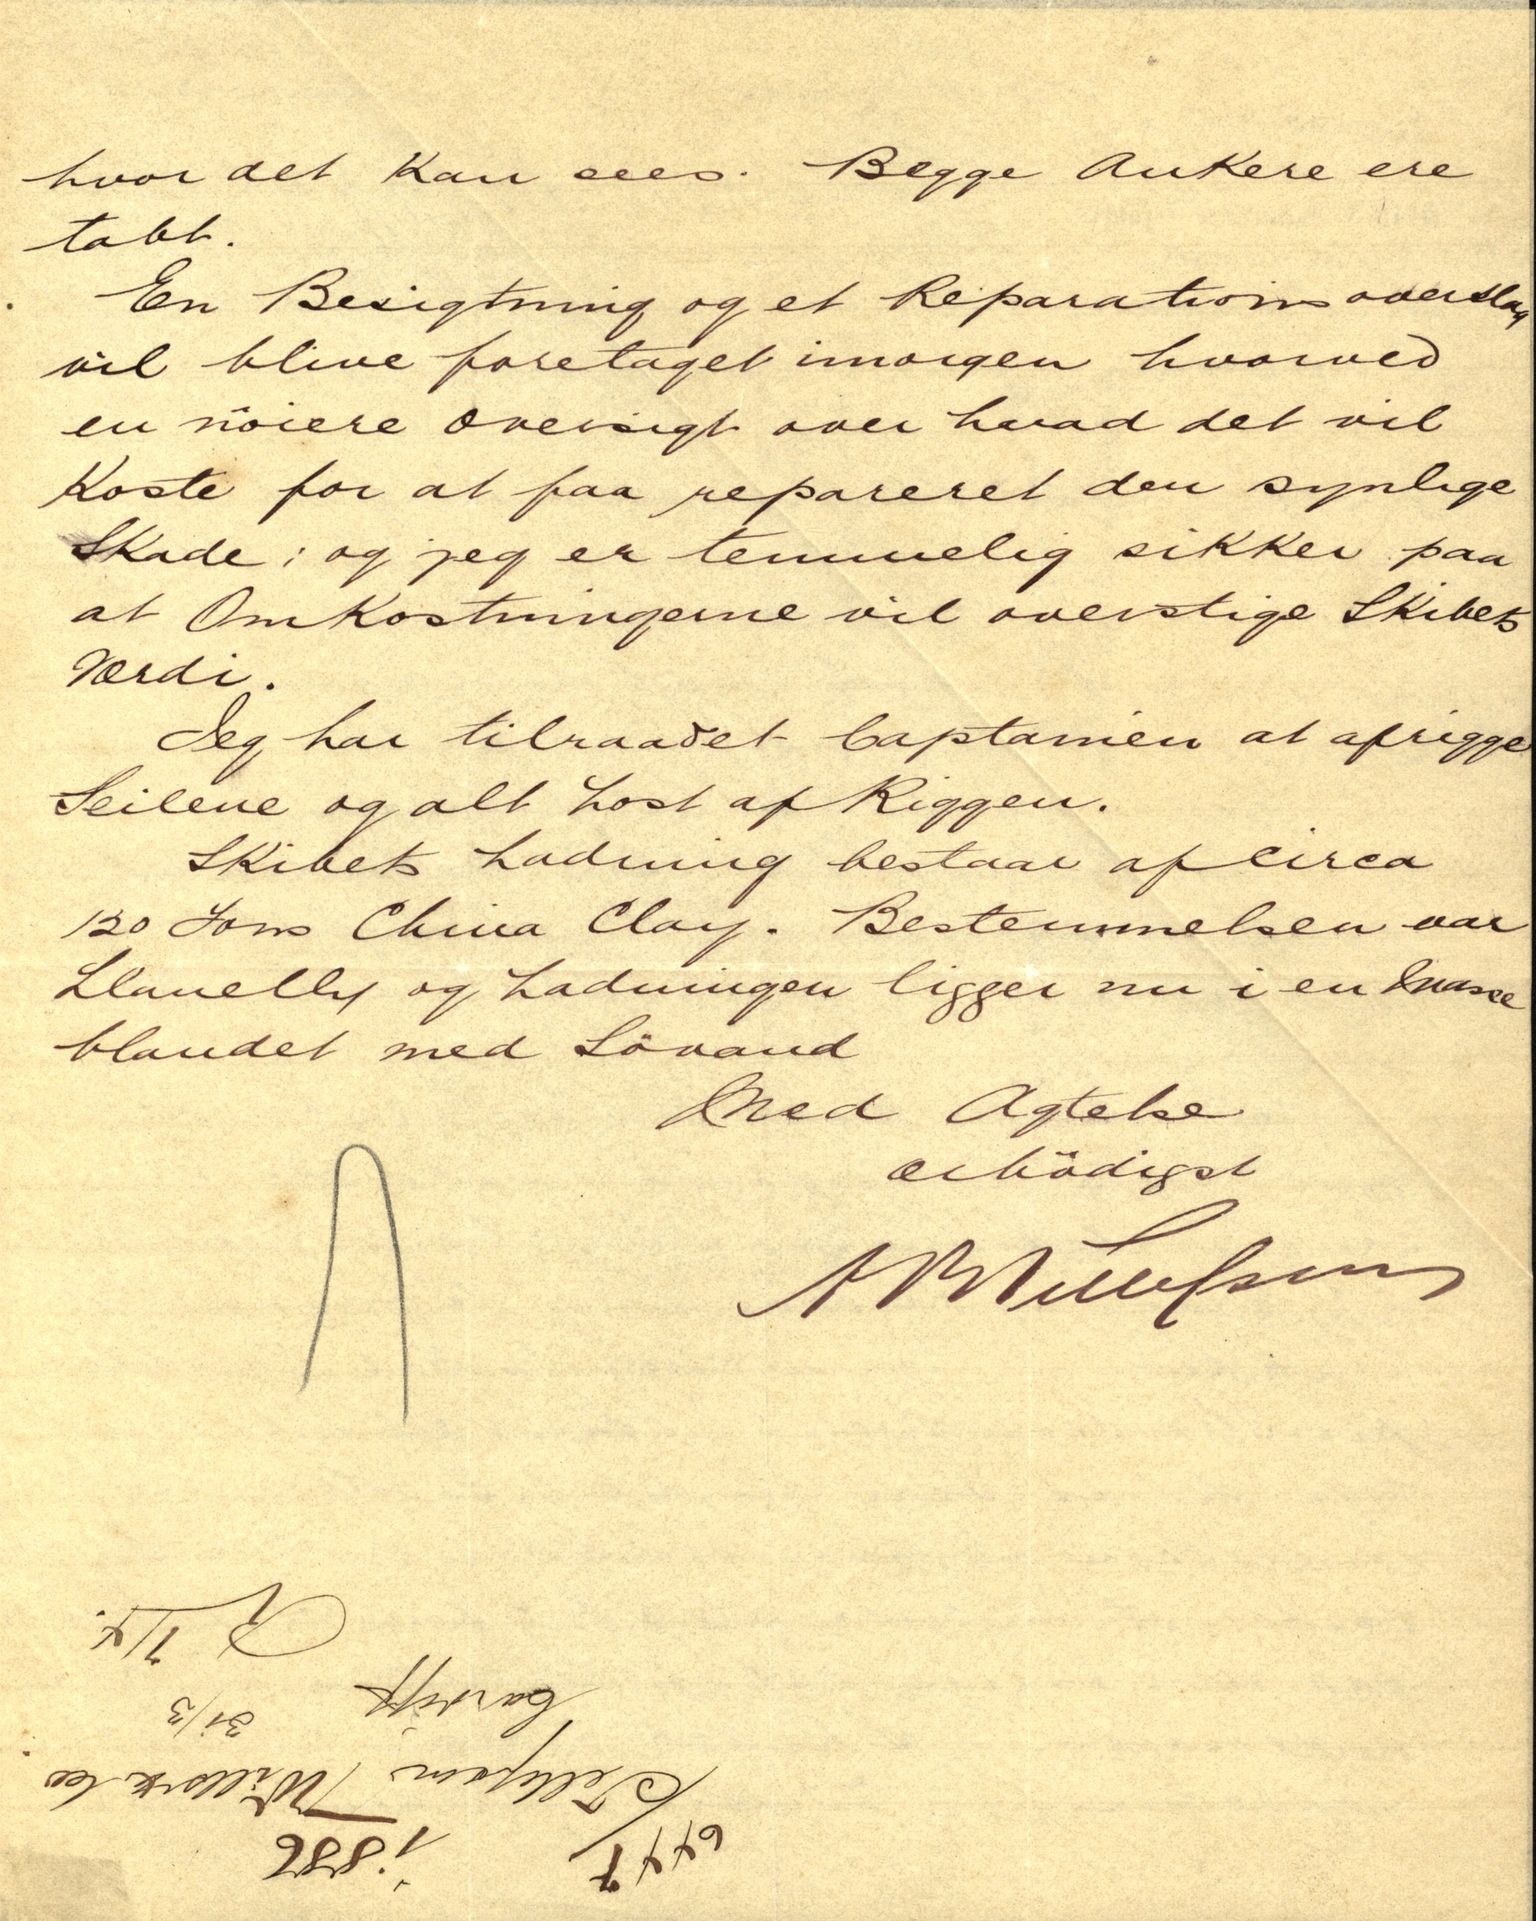 hvor det Kan sees. Begge Ankere ere
tabt.
En Besigtning og et Reparationsoverslag
vil blive foretaget imorgen hvorved
en nöiere Oversigt over hvad det vil
Koste for at faa repareret den synlige
Skade; og jeg er temmelig sikker paa
at Omkostningerne vil overstige Skibets
Værdi.
Jeg har tilraadet Captainen at afrigge
Seilene og alt Löst af Riggen.
Skibets Ladning bestaar af circa
120 Tons China Clay. Bestemmelsen var
Llanelly og Ladningen ligger nu i en Masse
blandet med Sövand
Med Agtelse
ærbödigst
6447
1886
Wills & Co
31/3
Cardiff
1/4.